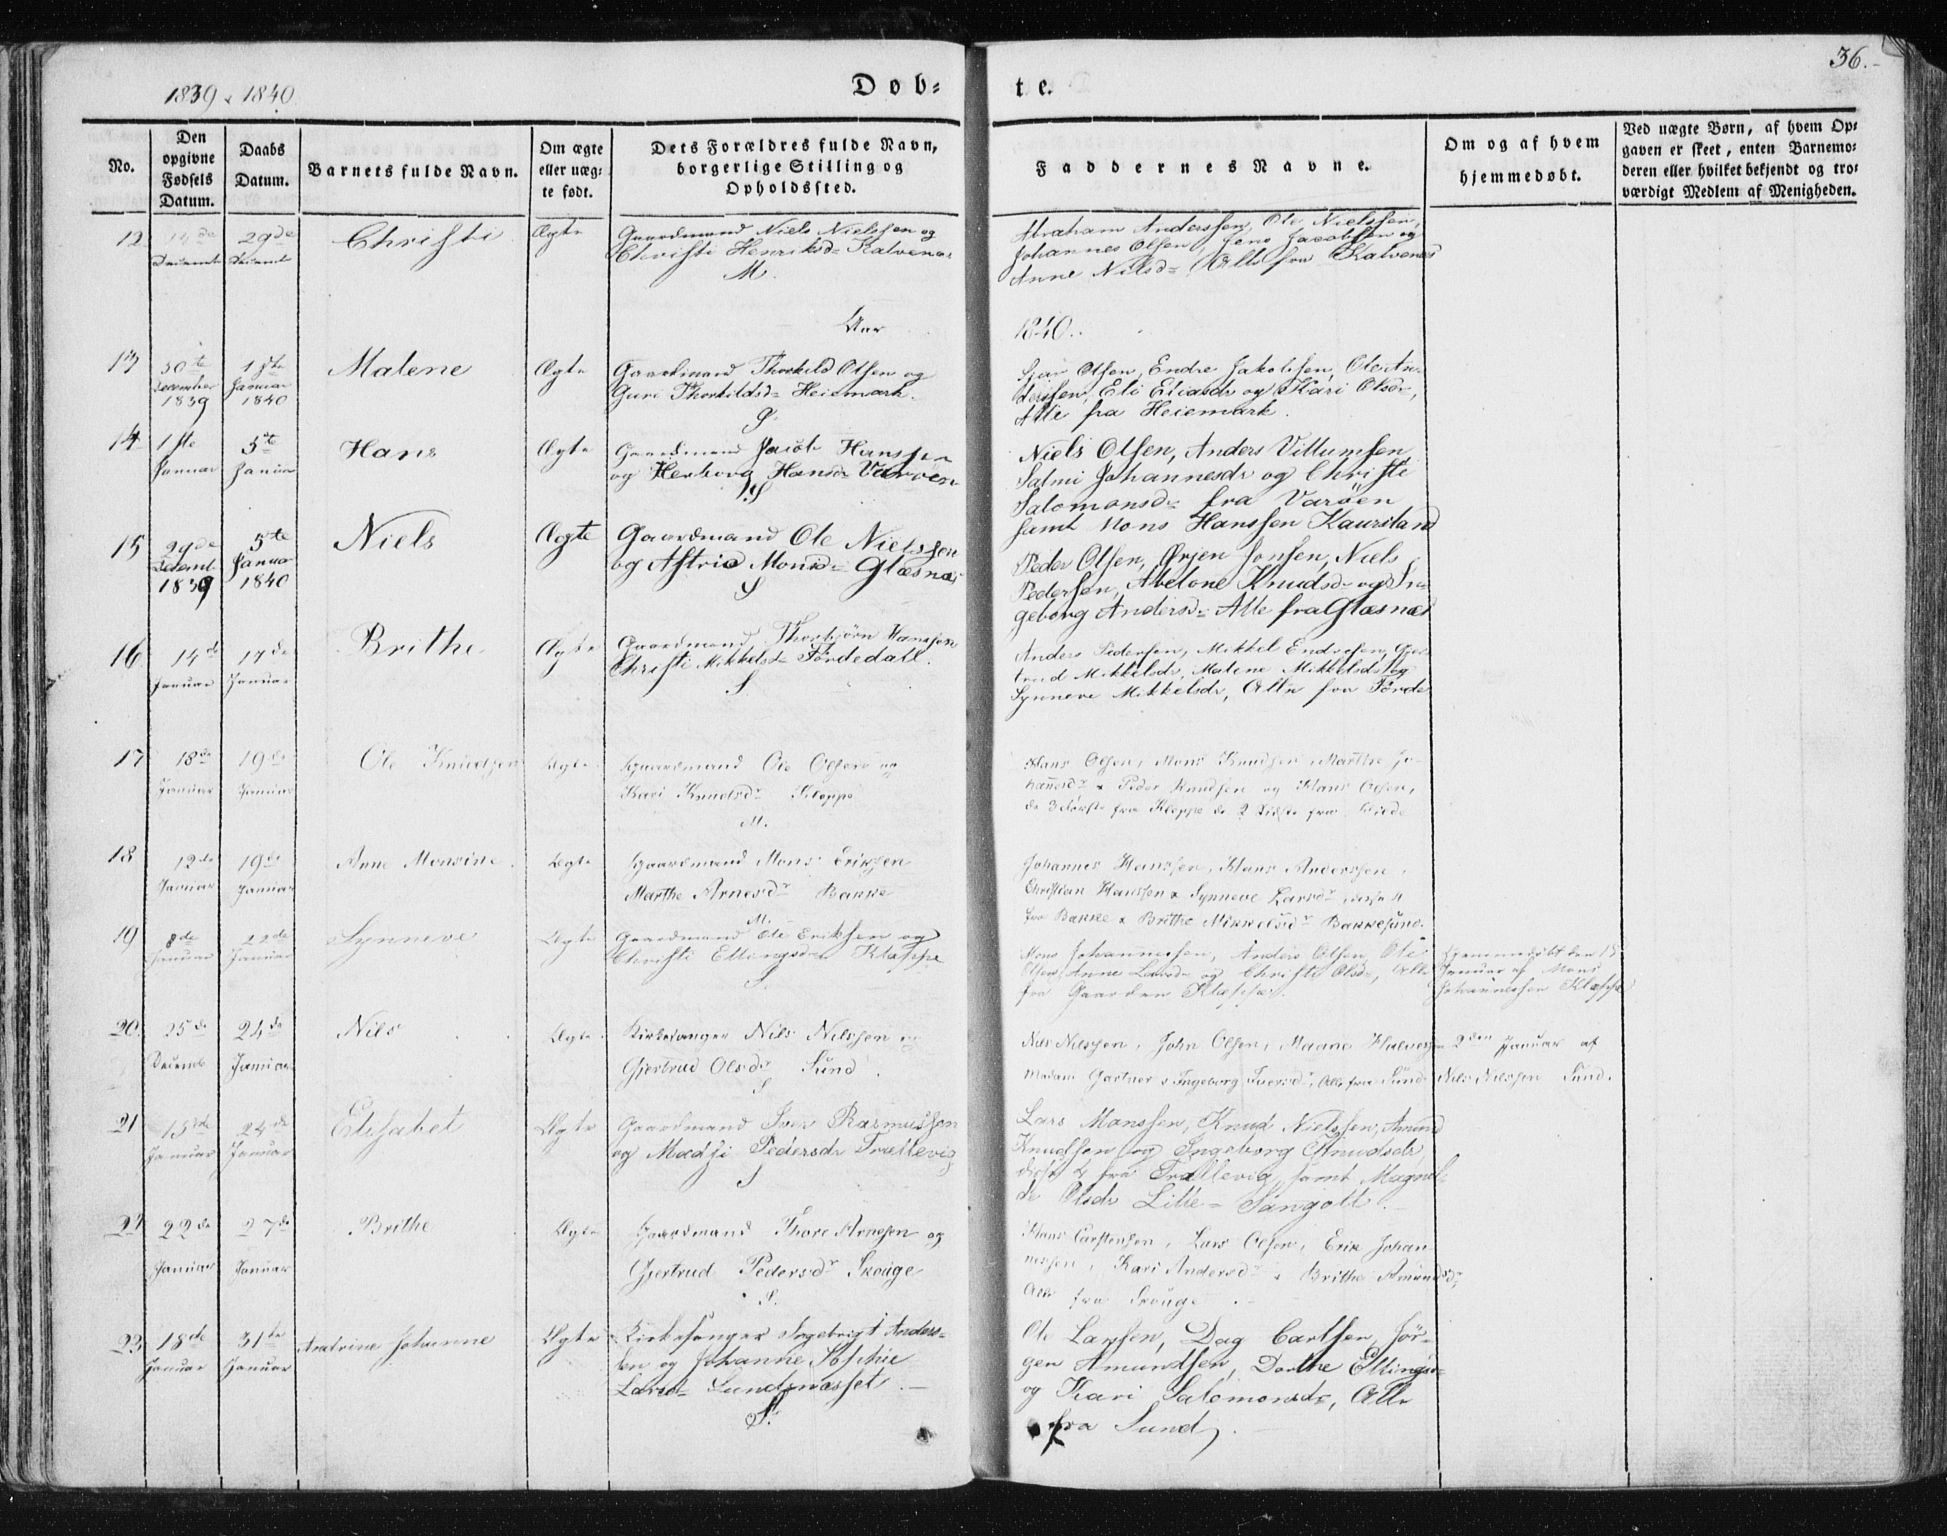 36.
1839 & 1840
Dob-
te.
No.
Den opgivne Fødsels Datum.
Daabs Datum.
Barnets fulde Navn.
Om ægte eller uægte født.
Dets Forældres fulde Navn, borgerlige Stilling og Opholdssted.
Faddernes Navne.
Om og af hvem hjemmedøbt.
Ved uægte Børn, af hvem Opgaven er skeet, enten Barnemoderen eller hvilket bekjendt og troværdigt Medlem af Menigheden.
12 29de Christi Ægte Gaardmand Niels Nielssen og
Christi Henriksd= Kalvenæs
M.
Abraham Anderssen, Ole Nielssen,
Johannes Olsen, Jens Jacobssen og
Anne Nilsd= Alle fra Kalvenæs
Aar
1840.
13 30te December 1839 1ste Januar 1840 Malene Ægte Gaardmand Thorkild Olsen og
Guri Thorkildsd= Heiemark.
G.
Olsen, Endre Jakobsen, Ole An-
derssen, Eli Eliasdr og Kari Olsdr,
Alle fra Heiemark.
14 1ste Januar 5te Januar Hans Ægte Gaardmand Jacob Hanssen
og Herborg Hansdr Varøen
S
Niels Olsen, Anders Villumsen,
Salmi Johannesdr og Christi
Salomonsd= fra Varöen
samt Mons Hanssen Kaursland
15 29de Decemb. 1839 5te Januar 1840 Niels Ægte Gaardmand Ole Nielssen
og Astrid Monsd= Glæsnæs
S
Peder Olsen, Ørjen Jonsen, Niels
Pedersen, Abelone Knudsd= og In-
geborg Andersd= Alle fra Glæsnæs
16 14de Januar 17de Januar Brithe Ægte Gaardmand Thorbjörn Hanssen
Christi Mikkelsd= Fördedall.
S
Anders Pedersen, Mikkel Endresen, Gjer-
trud Mikkelsdr, Malene Mikkelsdr og
Synneve Mikkelsdr, Alle fra Förde
17 18de Januar 19de Januar Ole Knudsen Ægte Gaardmand Ole Olsen og
Kari Knudsdr Kleppe
M.
Hans Olsen, Mons Knudsen, Marthe Jo-
hannesdr & Peder Knudsen og Hans Olsen,
de 3 første fra Kleppe de 2 Sidste fra
18 12te Januar 19de Januar Anne Monsine Ægte Gaardmand Mons Eriksen
Marthe Arnesdr Bakke
M.
Johannes Hanssen, Hans Anderssen,
Christian Hanssen & Synneve Larsdr, disse 4
fra Bakke & Brithe Mikkelsdr Bakkesund.
19 8de Januar 22de Januar Synneve Ægte Gaardmand Ole Eriksen og
Christi Ellingsd= Kleppe
S.
Mons Johannessen, Anders Olsen, Ole
Olsen, Anne Larsd= og Christi Olsd=, Alle
fra Gaarden Kleppe.
Hjemmedøbt den
Januar af Mons
Johannessen Kleppe
20 25de Decemb 24de Januar Nils Ægte Kirkesanger Nils Nilssen og
Gjertrud Olsdr Sund.
S
Nils Nilssen, John Olsen, Maane Halvorsen
Madam Gartner & Ingeborg Iversdr, Alle fra Sund
2den Januar af
Nils Nilssen Sund.
21 15de Januar 24de Januar Elisabet Ægte Gaardmand Iver Rasmussen
og Madsi Pedersdr Trællevig
S
Lars Monssen, Knud Nielssen, Amund
Knudssen og Ingeborg Knudsdr,
disse 4 fra Trællevig, samt Magnil-
de Olsdr Lille-Sangolt.
22 22de Januar 27de Januar Brithe Ægte Gaardmand Thore Arnesen og
Gjertrud Pedersdr Skouge
S.
Hans Carstensen, Lars Olsen, Erik Johan-
nessen, Kari Andersdr & Brithe Amundsdr,
Alle fra Skouge.
23 18de Januar 31te Januar Johanne Ægte Kirkesanger Ingebrigt Anders-
sen og Johanne Sophie
Larsd= Sundsnæsset.
S.
Ole Larssen, Dag Carlsen, Jör-
gen Amundsen, Dorthe Ellingsd=
og Kari Salomonsdr, Alle
fra Sund.